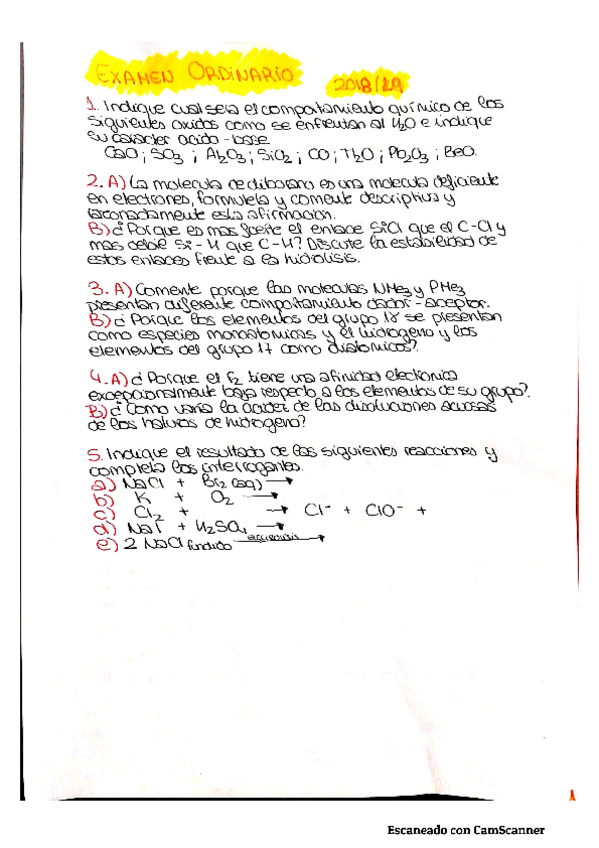 EXAMEN ORDINARIO 2018/19
1. Indique cual sera el comportamiento químico de los
siguientes oxidos como se enfrentan al H2O e indique
su caracter acido-base
CaO ; SO3 ; Al2O3 ; SiO2 ; CO ; Tl2O ; Pb2O3 ; BeO.
2. A) La molecula de diborano es una molecula deficiente
en electrones, formulela y comente descriptiva y
razonadamente esta afirmacion.
B) ¿Porque es mas fuerte el enlace SiCl que el C-Cl y
mas debil Si-H que C-H? Discute la estabilidad de
estos enlaces frente a la hidrolisis.
3. A) Comente porque las moleculas NMe3 y PMe3
presentan diferente comportamiento dador-aceptor.
B) ¿Porque los elementos del grupo 18 se presentan
como especies monoatomicas y el hidrogeno y los
elementos del grupo 17 como diatomicos?
4. A) ¿Porque el F2 tiene una afinidad electronica
excepcionalmente baja respecto a los elementos de su grupo?
B) ¿Como varia la acidez de las disoluciones acuosas
de los haluros de hidrogeno?
5. Indique el resultado de las siguientes reacciones y
completa los interrogantes.
a) NaCl + Br2 (aq) →
b) K + O2 →
c) Cl2 + → Cl- + ClO- +
d) NaI + H2SO4 →
e) 2 NaCl fundido electrolisis →
Escaneado con CamScanner